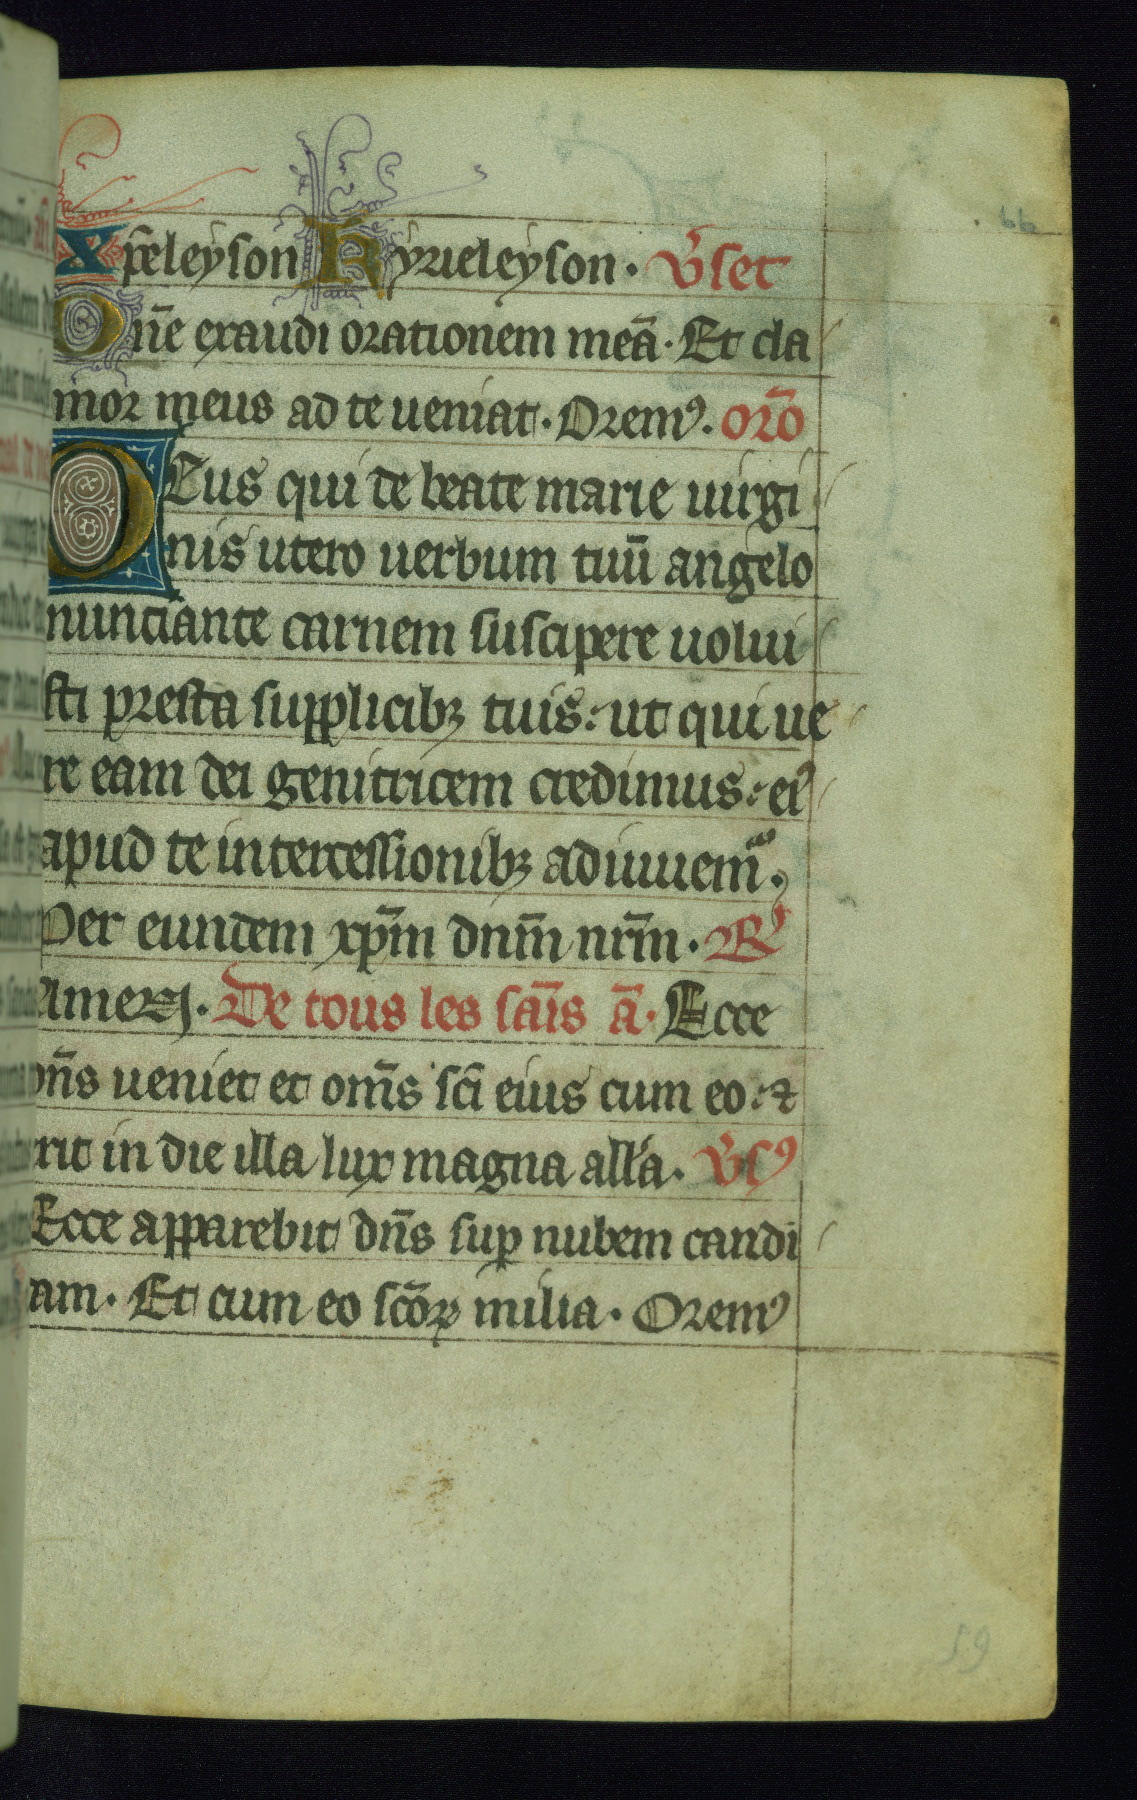 xp̄eleyson kyrieleyson. v̄set
Dn̄e exaudi orationem meā. Et cla
mor meus ad te ueniat. Oremꝰ. orō
Deus qui de beate marie uirgi
nis utero uerbum tuū angelo
nunciante carnem suscipere uolui
sti presta supplicibꝫ tuis: ut qui ue
re eam dei genitricem credimus: eiꝰ
apud te intercessionibꝫ adiuuemᷓ.
Per eundem xp̄m dnm̄ nrm̄. ℟
Amen. De tous les sāīs ā. Ecce
dn̄s ueniet et om̄s sc̄i eius cum eo: ⁊
erit in die illa lux magna all'a. v̄sꝰ
Ecce apparebit dn̄s suꝑ nubem candi
dam. Et cum eo sc̄oꝝ milia. Oremꝰ
66
59